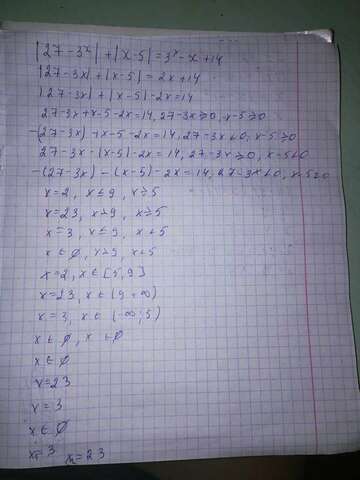 |27-3ˣ|+|x-5|=3ˣ-x+14
|27-3x|+|x-5|=2x+14
|27-3x|+|x-5|-2x=14
27-3x+x-5-2x=14, 27-3x≥0, x-5≥0
-(27-3x)+x-5-2x=14, 27-3x<0, x-5≥0
27-3x-(x-5)-2x=14, 27-3x≥0, x-5<0
-(27-3x)-(x-5)-2x=14, 27-3x<0, x-5<0
x=2, x≤9, x≥5
x=23, x>9, x≥5
x=3, x≤9, x<5
x∈∅, x>9, x<5
x=2, x∈[5,9]
x=23, x∈(9+∞)
x=3, x∈(-∞;5)
x∈∅, x∈∅
x∈∅
x=23
x=3
x∈∅
x=3 x₂=23